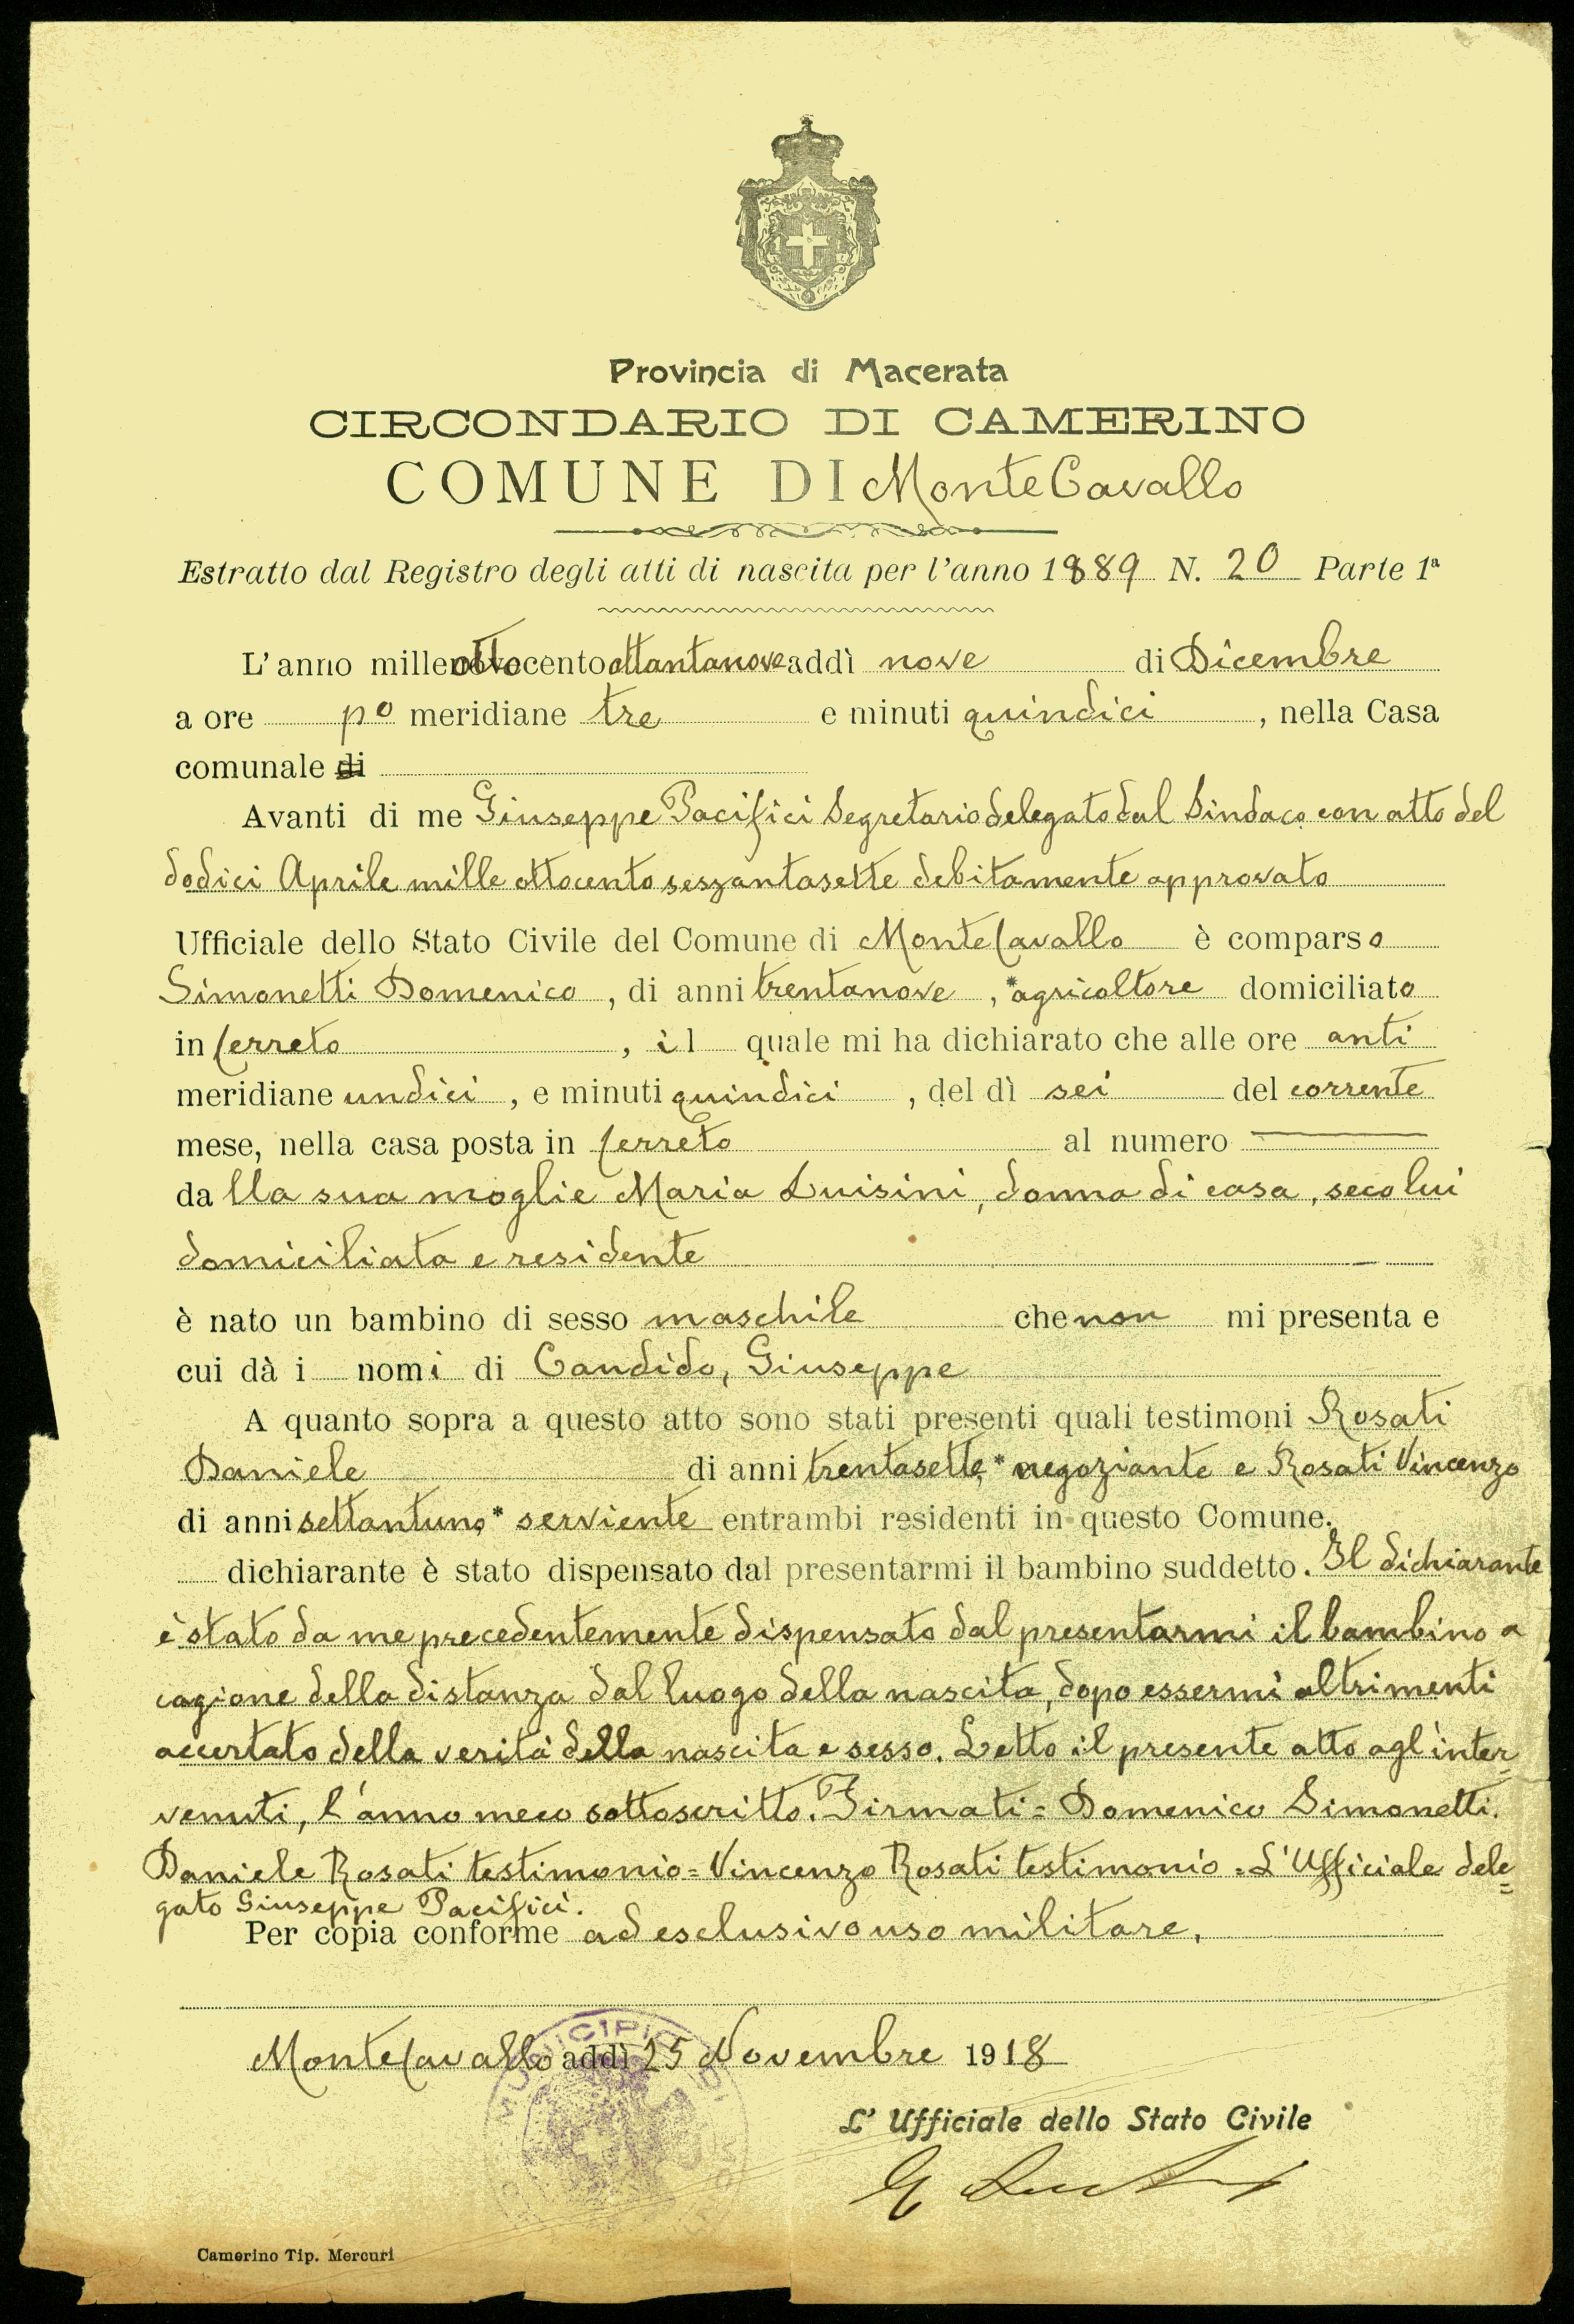 Provincia di Macerata
CIRCONDARIO DI CAMERINO
COMUNE DI MonteCavallo
Estratto dal Registro degli atti di nascita per l'anno 1889 N. 20 Parte 1ª
L'anno milleottocentoottantanove addì nove di Dicembre
a ore po meridiane tre e minuti quindici, nella Casa
comunale di
Avanti di me Giuseppe Pacifici Segretario delegato dal Sindaco con atto del
dodici Aprile mille ottocento sessantasette debitamente approvato
Ufficiale dello Stato Civile del Comune di MonteCavallo è comparso
Simonetti Domenico, di anni trentanove, *agricoltore domiciliato
in Cerreto, il quale mi ha dichiarato che alle ore anti
meridiane undici, e minuti quindici, del dì sei del corrente
mese, nella casa posta in Cerreto al numero
dalla sua moglie Maria Luisini, donna di casa, seco lui
domiciliata e residente
è nato un bambino di sesso maschile che non mi presenta e
cui dà i nomi di Candido, Giuseppe
A quanto sopra a questo atto sono stati presenti quali testimoni Rosati
Daniele di anni trentasette,* negoziante e Rosati Vincenzo
di anni settantuno,* serviente entrambi residenti in questo Comune.
dichiarante è stato dispensato dal presentarmi il bambino suddetto. Il dichiarante
è stato da me precedentemente dispensato dal presentarmi il bambino a
cagione della distanza dal luogo della nascita, dopo essermi altrimenti
accertato della verità della nascita e sesso. Letto il presente atto agl'inter-
venuti, l'anno meco sottoscritto. Firmati = Domenico Simonetti.
Daniele Rosati testimonio = Vincenzo Rosati testimonio = L'Ufficiale dele=
gato Giuseppe Pacifici.
Per copia conforme ad esclusivo uso militare.
MonteCavallo addì 25 Novembre 1918
MUNICIPIO DI
L' Ufficiale dello Stato Civile
Camerino Tip. Mercuri